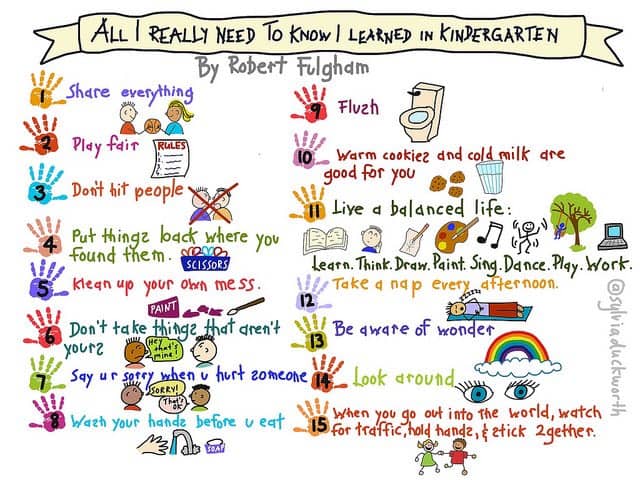 ALL I REALLY NEED TO KNOW I LEARNED IN KINDERGARTEN
By Robert Fulgham
1 Share everything
2 Play fair
RULES
3 Don't hit people
4 Put things back where you
found them.
SCISSORS
5 Klean up your own mess.
PAINT
6 Don't take things that aren't
yours
Hey that's mine!
7 Say u r sorry when u hurt someone
SORRY!
That's OK
8 Wash your hands before u eat
SOAP
9 Flush
10 Warm cookies and cold milk are
good for you
11 Live a balanced life:
Learn. Think. Draw. Paint. Sing. Dance. Play. Work.
12 Take a nap every afternoon.
13 Be aware of wonder
14 Look around
15 When you go out into the world, watch
for traffic, hold hands, & stick 2gether.
@sylviaduckworth